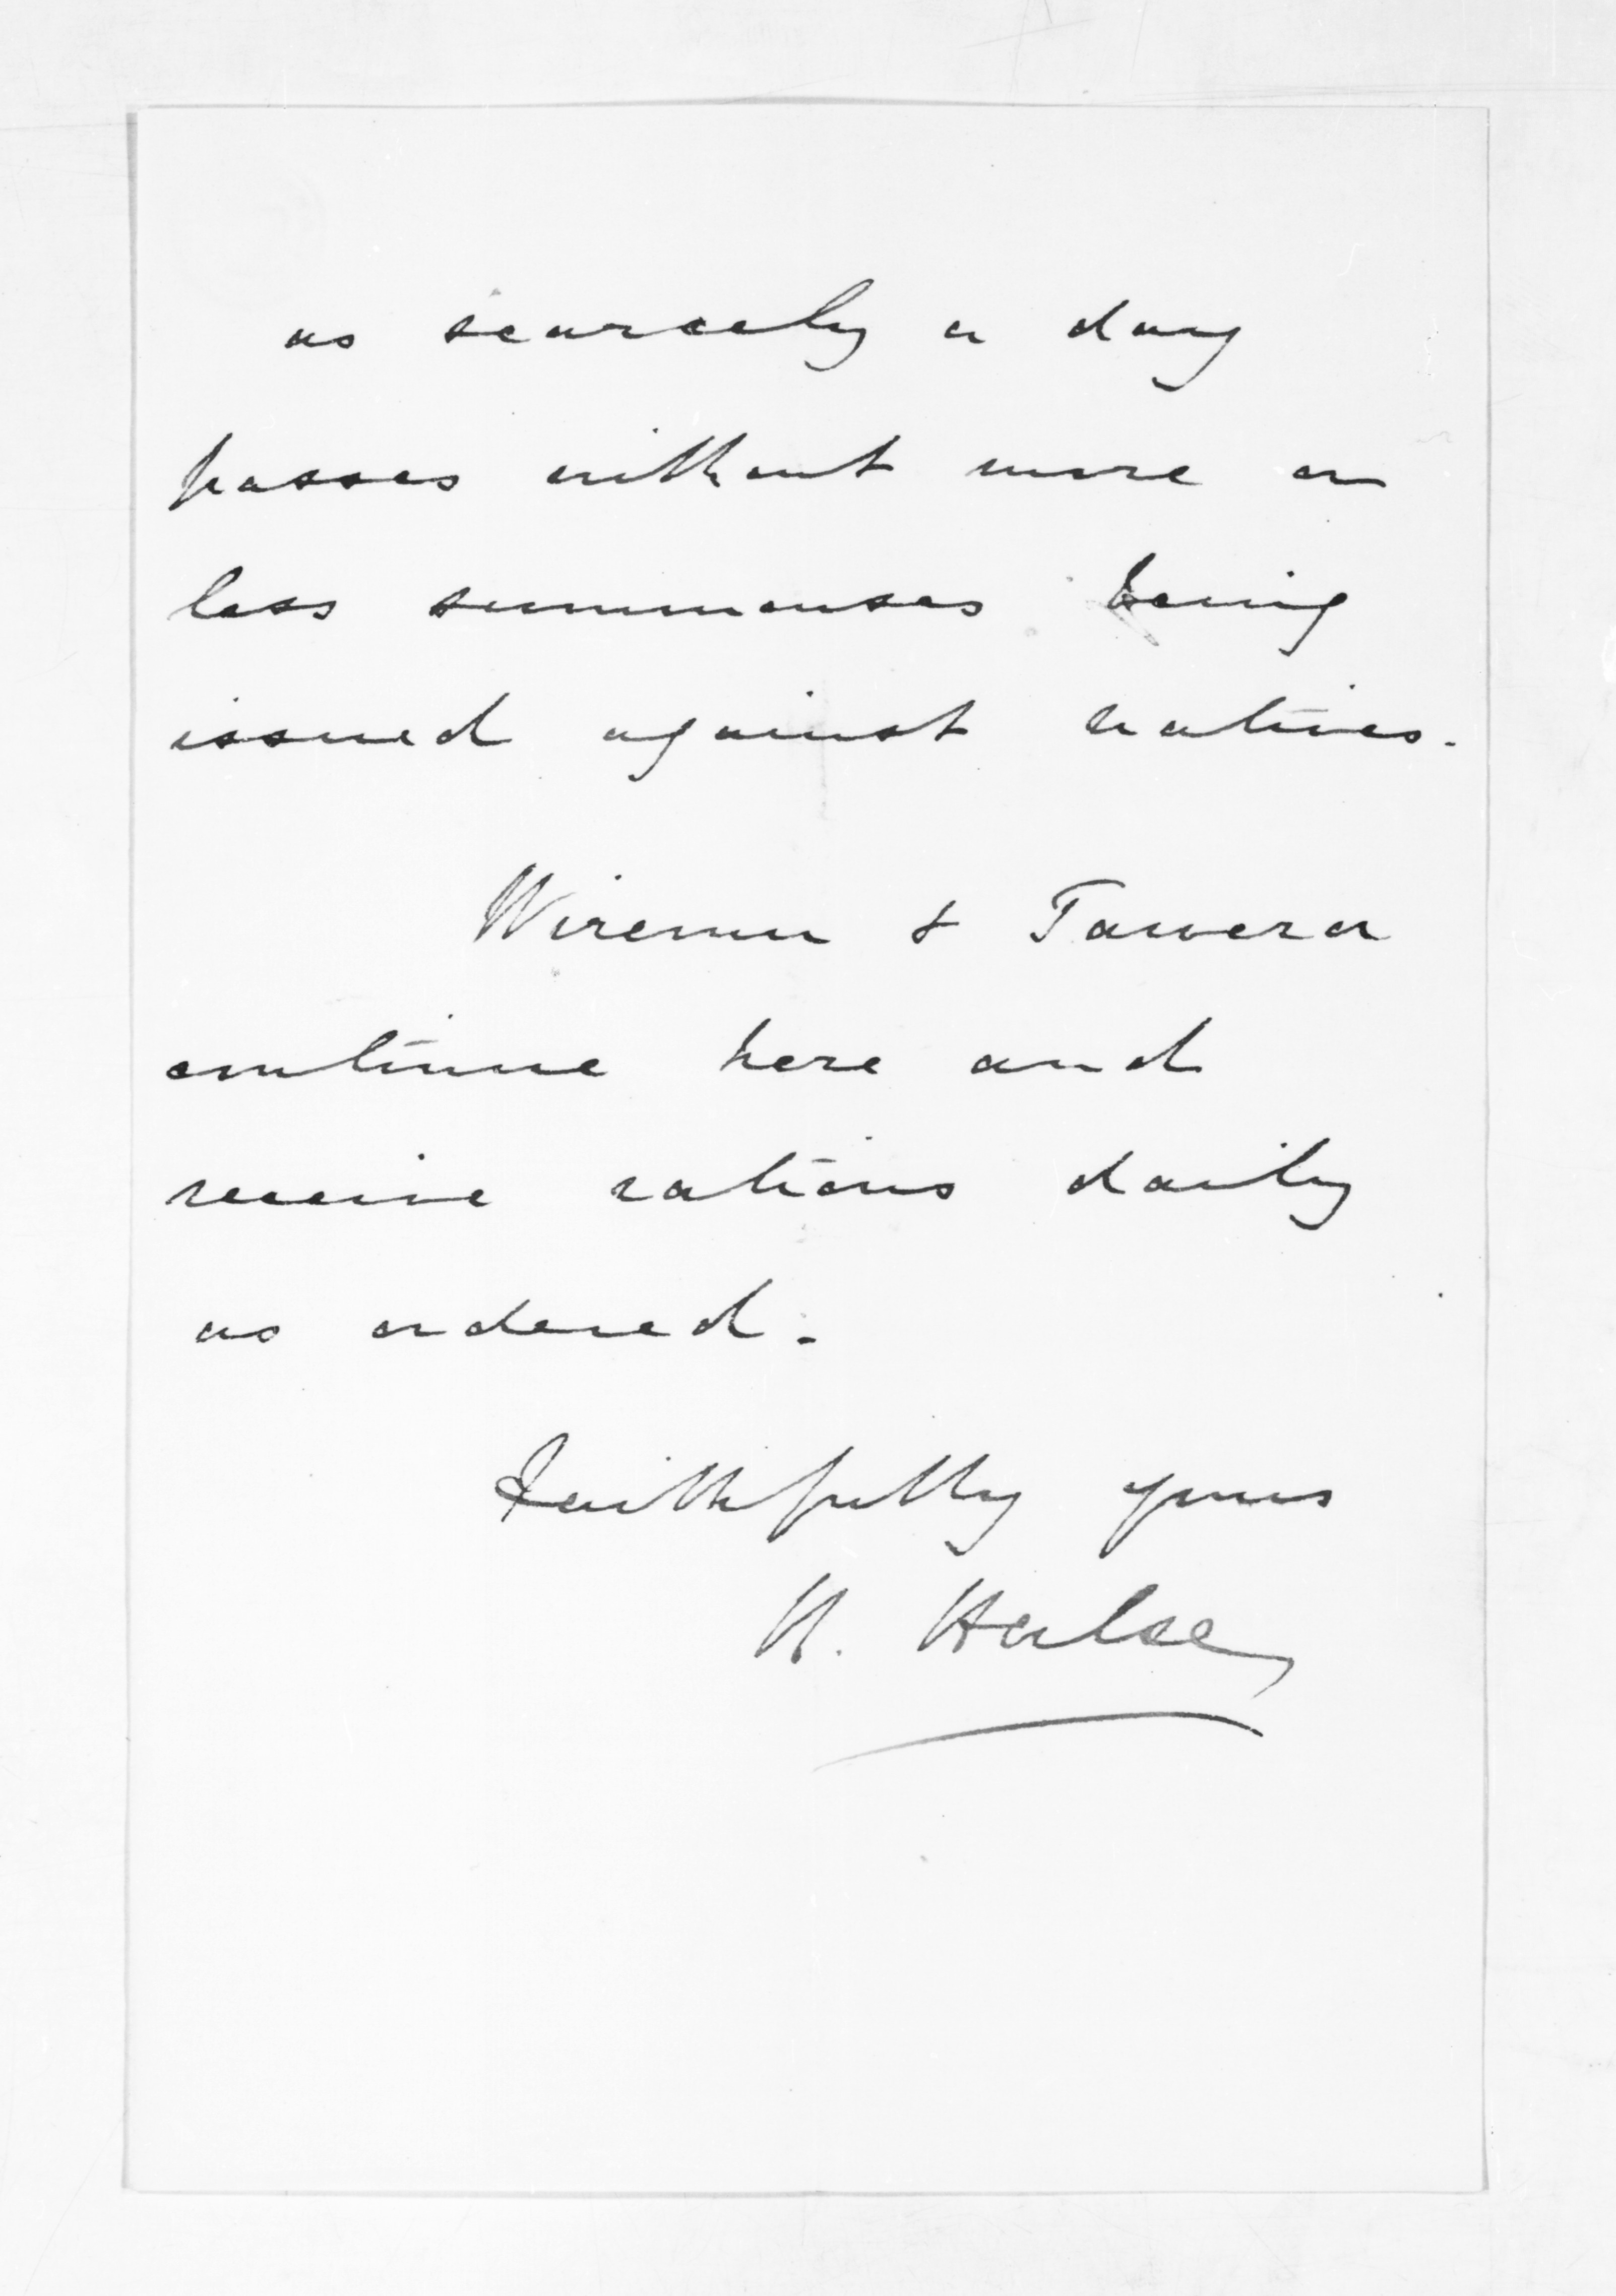 as scarcely a day
passes without more or
less summonses being
issued against natives.
Wiremu & Tawera
continue here and
receive rations daily
as ordered.
Faithfully yours
H. Halse